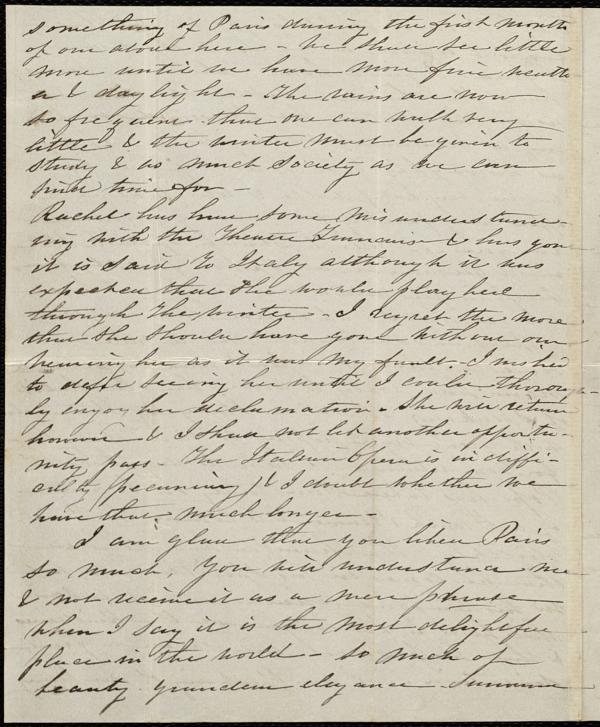 something of Paris during the first month
of our abode here - We shall see little
more until we have more fine weather
& daylight - The rains are now
so frequent that one can walk very
little & the winter must be given to
study & as much society as we can
find time for -
Rachel has had some misunderstand-
ing with the Theatre Francais & has gone
it is said to Italy although it was
expected that she would play here
through the winter - I regret the more
that she should have gone without our
hearing her as it was my fault. I wished
to defer seeing her until I could thorough-
ly enjoy her declamation. She will return
however & I shall not let another opportu-
nity pass - The Italian Opera is in diffi-
culty (pecuniary) & I doubt whether we
have that much longer -
I am glad that you liked Paris
so much. You will understand me
& not receive it as a mere phrase
when I say it is the most delightful
place in the world - so much of
beauty grandeur elegance -